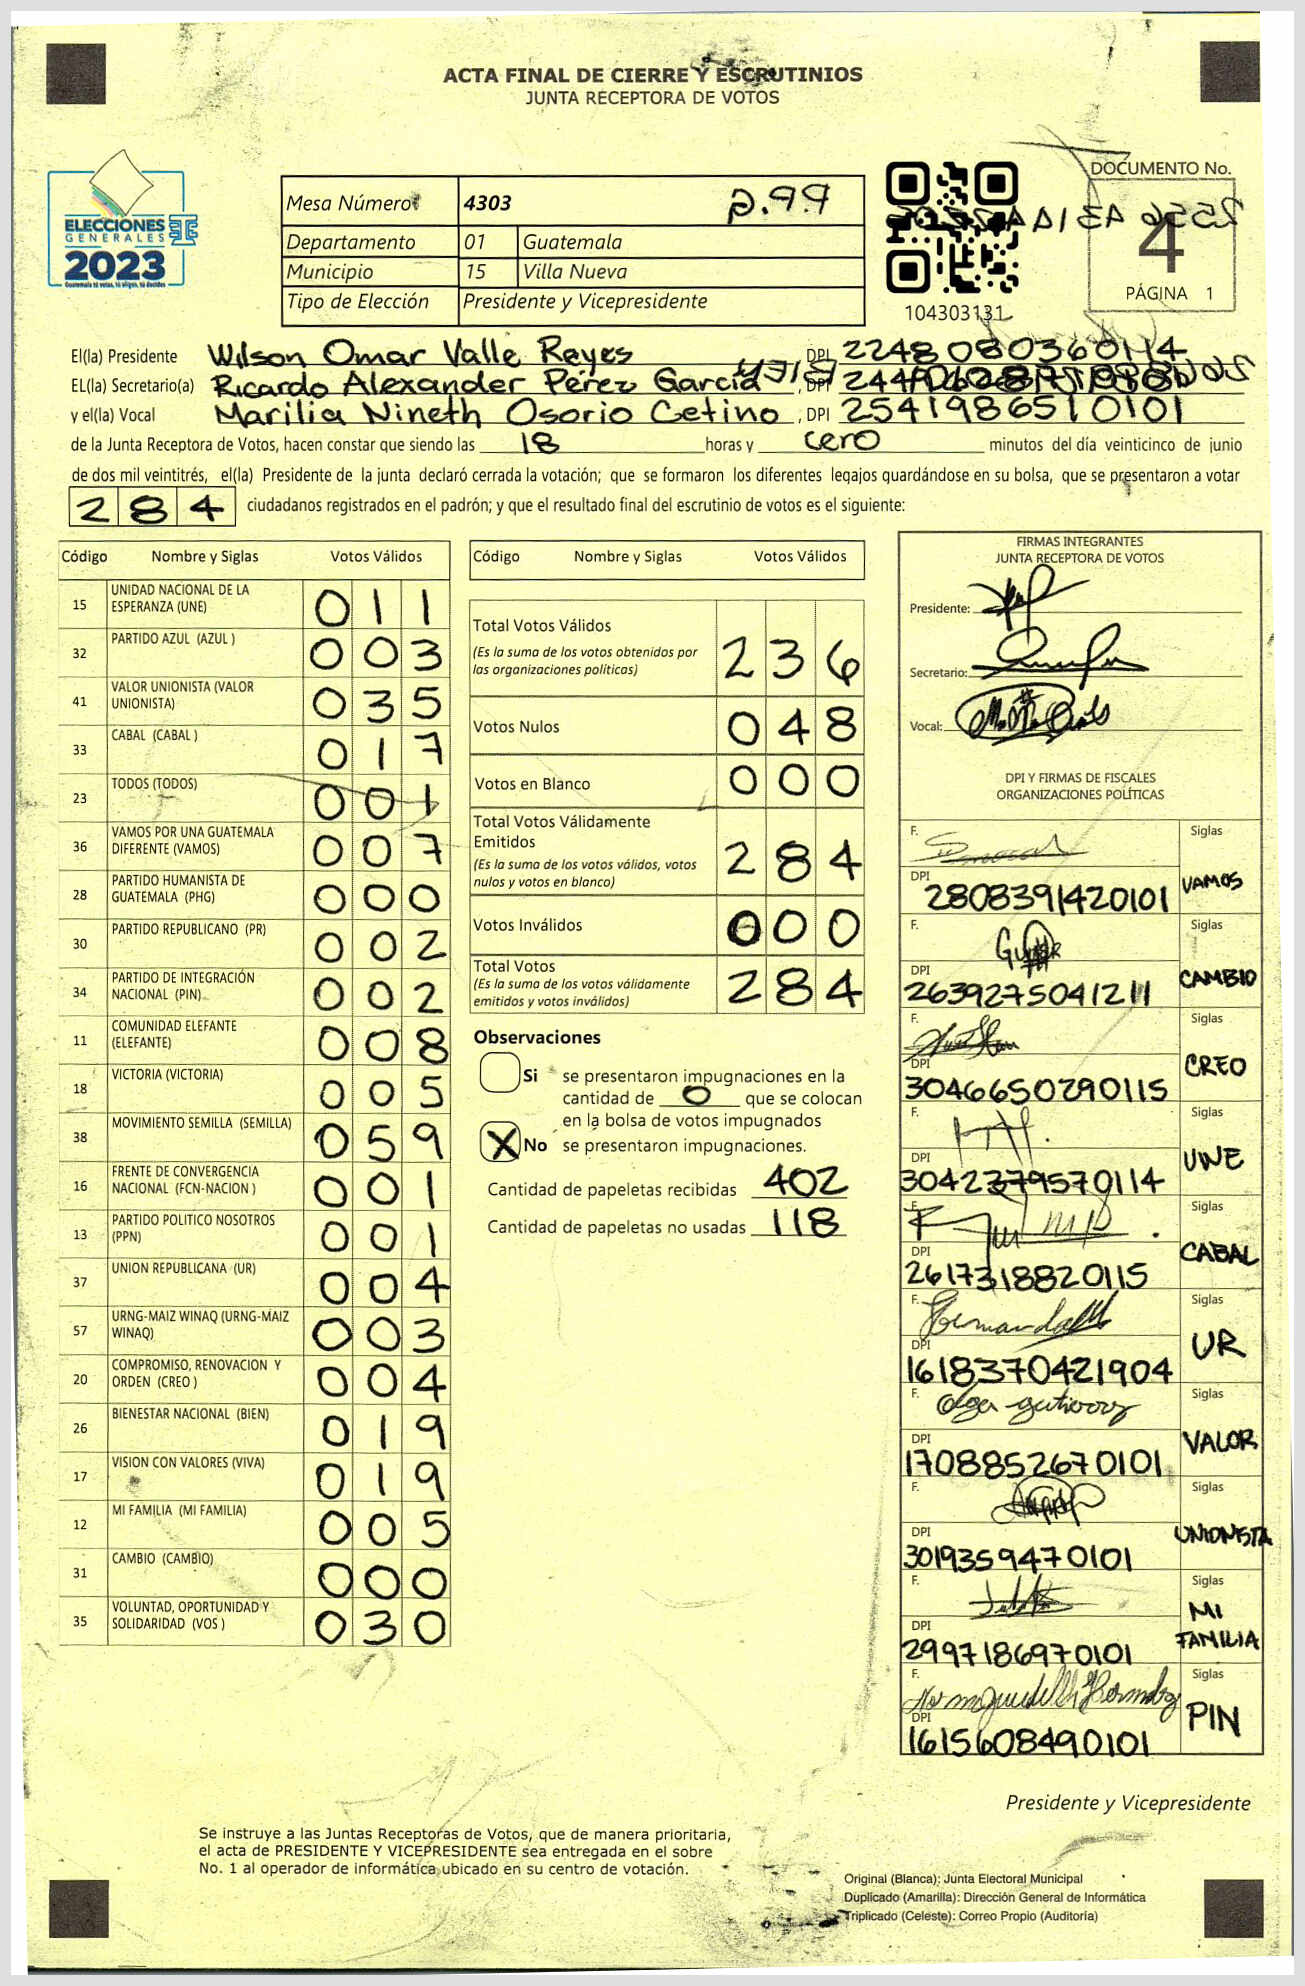 ACTA FINAL DE CIERRE Y ESCRUTINIOS
JUNTA RECEPTORA DE VOTOS
ELECCIONES
GENERALES
2023
Guatemala tú votas, tú eliges, tú decides
Mesa Número 4303 2.99
Departamento 01 Guatemala
Municipio 15 Villa Nueva
Tipo de Elección Presidente y Vicepresidente
104303131
DOCUMENTO No.
4
PÁGINA 1
El(la) Presidente Wilson Omar Valle Reyes DPI 2248 08036 0114
EL(la) Secretario(a) Ricardo Alexander Pérez García, DPI
y el(la) Vocal Marilia Nineth Osorio Cetino, DPI 2541986510101
de la Junta Receptora de Votos, hacen constar que siendo las 18 horas y cero minutos del día veinticinco de junio
de dos mil veintitrés, el(la) Presidente de la junta declaró cerrada la votación; que se formaron los diferentes legajos guardándose en su bolsa, que se presentaron a votar
284 ciudadanos registrados en el padrón; y que el resultado final del escrutinio de votos es el siguiente:
Código Nombre y Siglas Votos Válidos
15 UNIDAD NACIONAL DE LA ESPERANZA (UNE) 011
32 PARTIDO AZUL (AZUL ) 003
41 VALOR UNIONISTA (VALOR UNIONISTA) 035
33 CABAL (CABAL ) 017
23 TODOS (TODOS) 001
36 VAMOS POR UNA GUATEMALA DIFERENTE (VAMOS) 007
28 PARTIDO HUMANISTA DE GUATEMALA (PHG) 000
30 PARTIDO REPUBLICANO (PR) 002
34 PARTIDO DE INTEGRACIÓN NACIONAL (PIN) 002
11 COMUNIDAD ELEFANTE (ELEFANTE) 008
18 VICTORIA (VICTORIA) 005
38 MOVIMIENTO SEMILLA (SEMILLA) 059
16 FRENTE DE CONVERGENCIA NACIONAL (FCN-NACION ) 001
13 PARTIDO POLITICO NOSOTROS (PPN) 001
37 UNION REPUBLICANA (UR) 004
57 URNG-MAIZ WINAQ (URNG-MAIZ WINAQ) 003
20 COMPROMISO, RENOVACION Y ORDEN (CREO ) 004
26 BIENESTAR NACIONAL (BIEN) 019
17 VISION CON VALORES (VIVA) 019
12 MI FAMILIA (MI FAMILIA) 005
31 CAMBIO (CAMBIO) 000
35 VOLUNTAD, OPORTUNIDAD Y SOLIDARIDAD (VOS ) 030
Código Nombre y Siglas Votos Válidos
Total Votos Válidos 236
(Es la suma de los votos obtenidos por
las organizaciones políticas)
Votos Nulos 048
Votos en Blanco 000
Total Votos Válidamente
Emitidos 284
(Es la suma de los votos válidos, votos
nulos y votos en blanco)
Votos Inválidos 000
Total Votos 284
(Es la suma de los votos válidamente
emitidos y votos inválidos)
Observaciones
Si se presentaron impugnaciones en la
cantidad de 0 que se colocan
en la bolsa de votos impugnados
X No se presentaron impugnaciones.
Cantidad de papeletas recibidas 402
Cantidad de papeletas no usadas 118
FIRMAS INTEGRANTES
JUNTA RECEPTORA DE VOTOS
Presidente:
Secretario:
Vocal:
DPI Y FIRMAS DE FISCALES
ORGANIZACIONES POLÍTICAS
F. Siglas
DPI 2808391420101 VAMOS
F. Siglas
DPI 2639275041211 CAMBIO
F. Siglas
DPI 3046650290115 CREO
F. Siglas
DPI 3042379570114 UNE
F. Siglas
DPI 2617318820115 CABAL
F. Siglas
DPI 1618370421904 UR
F. Olga gutierrez Siglas
DPI 1708852670101 VALOR
F. Siglas
DPI 3019359470101 UNIONISTA
F. Siglas
DPI 2997186970101 MI FAMILIA
F. Siglas
DPI 1615608490101 PIN
Presidente y Vicepresidente
Se instruye a las Juntas Receptoras de Votos, que de manera prioritaria,
el acta de PRESIDENTE Y VICEPRESIDENTE sea entregada en el sobre
No. 1 al operador de informática ubicado en su centro de votación.
Original (Blanca): Junta Electoral Municipal
Duplicado (Amarilla): Dirección General de Informática
Triplicado (Celeste): Correo Propio (Auditoría)